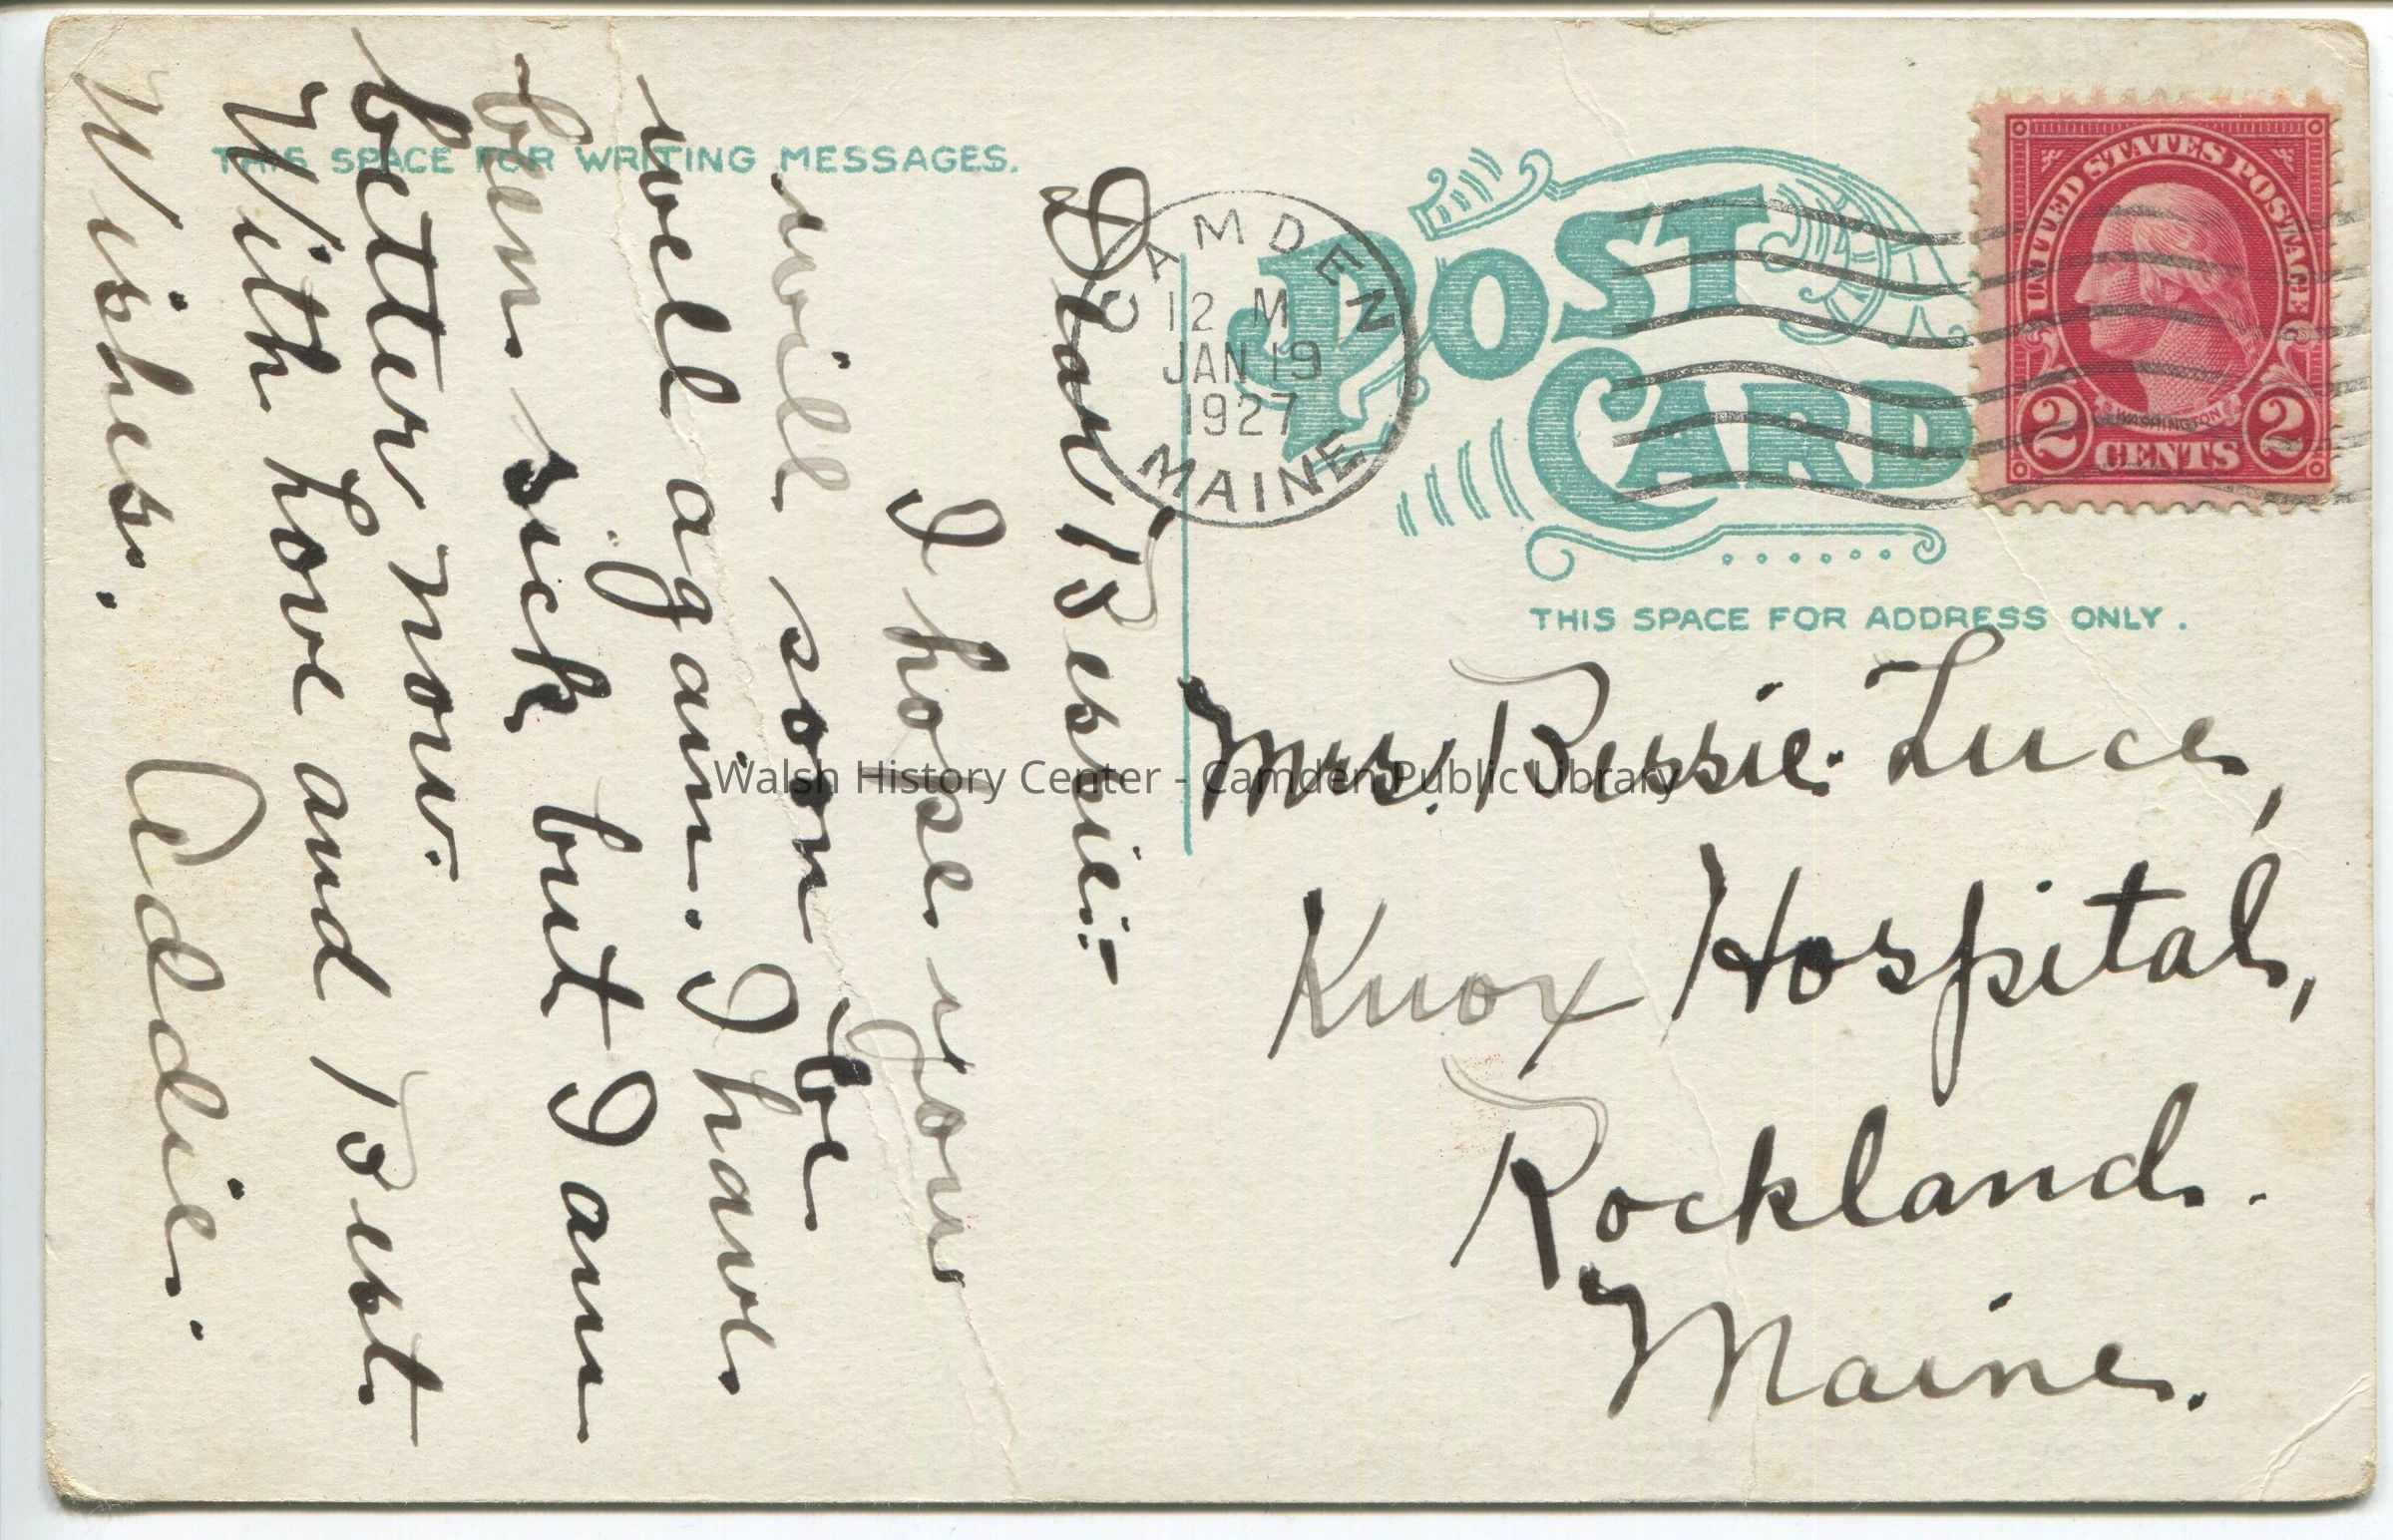 THIS SPACE FOR WRITING MESSAGES.
Dear Bessie:-
I hope you
will soon be
well again. I have
been sick but I am
better now.
With love and Best
Wishes.
Addie.
POST
CARD
CAMDEN
12 M
JAN 19
1927
MAINE
UNITED STATES POSTAGE
WASHINGTON
2 CENTS 2
THIS SPACE FOR ADDRESS ONLY.
Mrs. Bessie Luce,
Knox Hospital,
Rockland.
Maine.
Walsh History Center - Camden Public Library